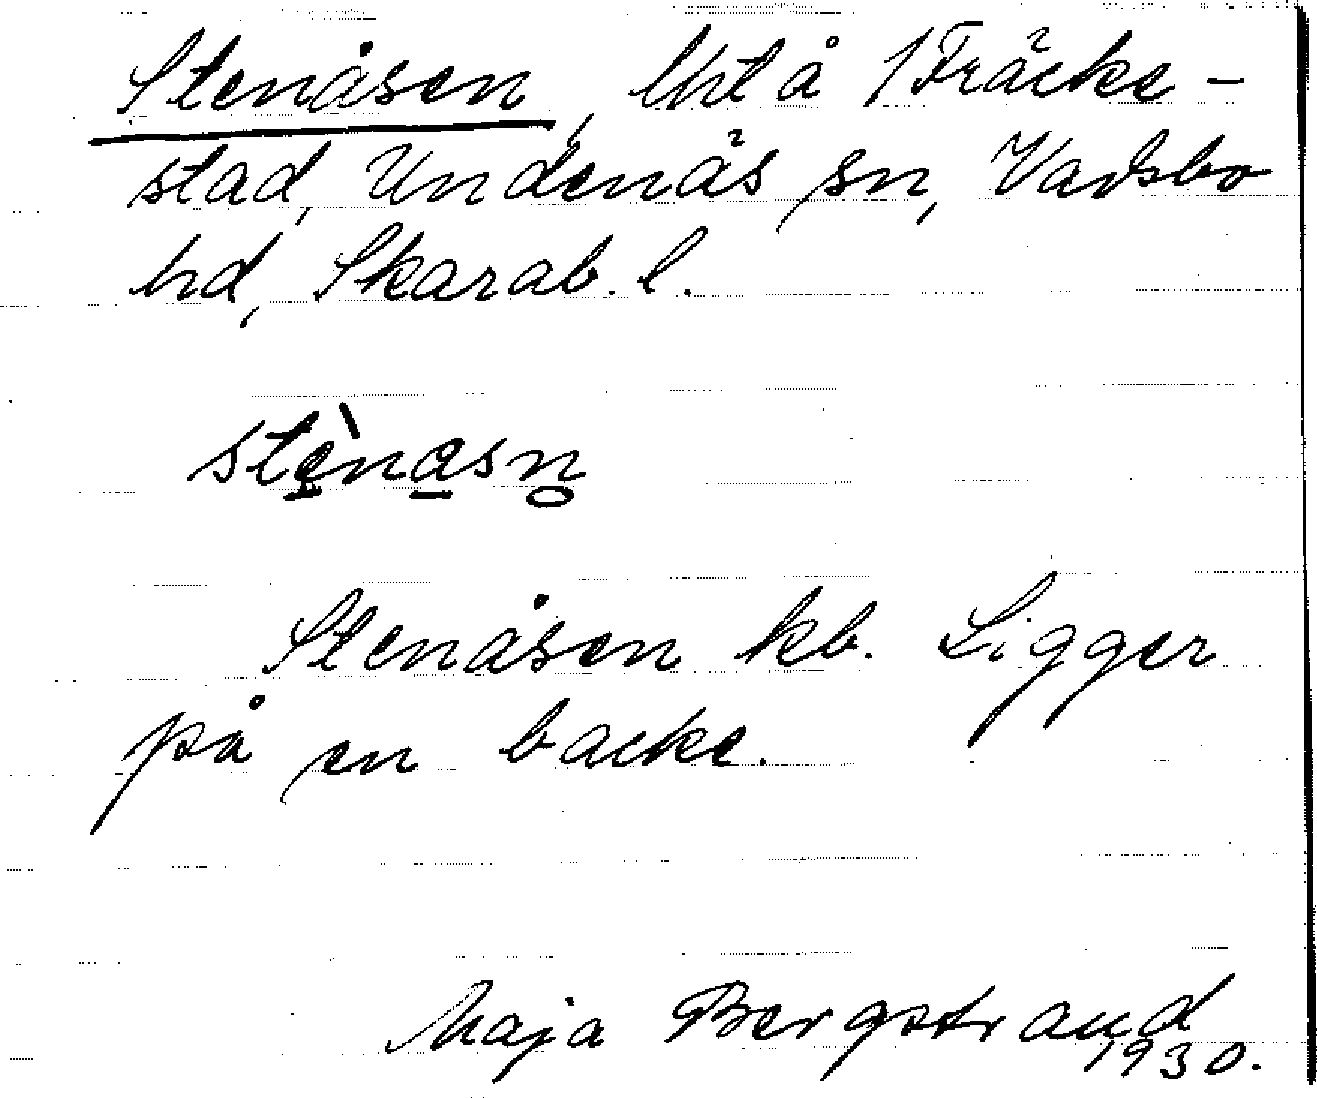 Stenåsen, lht å 1 Fräcke-
stad, Undenäs sn, Vadsbo
hd, Skarab. l.
stè̱na̱sn̥
Stenåsen kb. Ligger
på en backe.
Maja Bergstrand
1930.